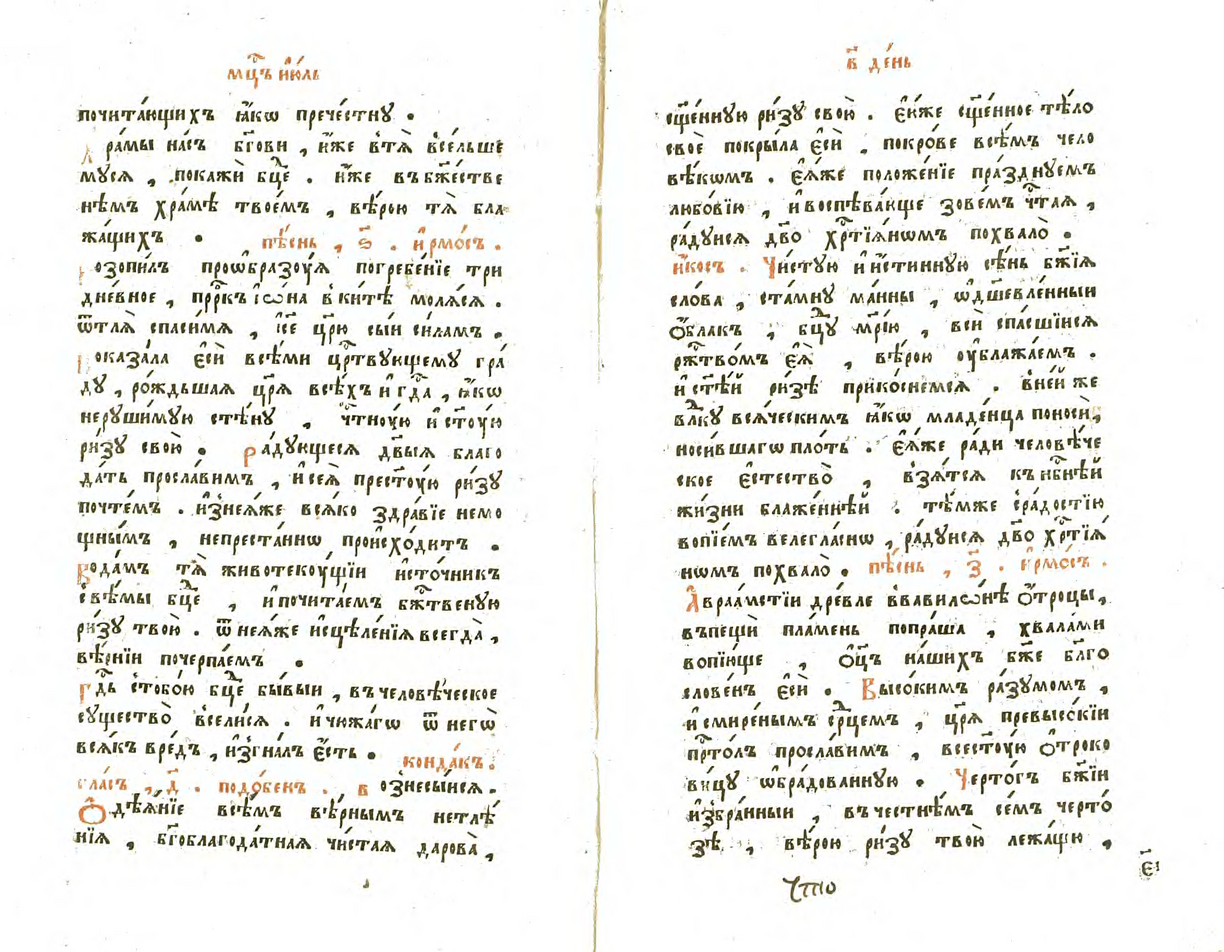 мц҃ъ ию́ль
почита́ющихъ ꙗ҆́кѡ пречестну .
Хра́мы на́съ бг҃ови , и҆́же втѧ̀ вселье
мꙋсѧ , покажѝ бц҃е . и҆́же въ бж҃естве
нѣмъ хра́мѣ твое́мъ , вѣ́рою тѧ̀ бла
жащихъ . пѣ́снь , ѕ҃ . и҆рмо́съ .
Возопи́лъ проѡбразоуѧ погребе́нїе три
дне́вное , прр҃къ і҆ѡ́на в ки́тѣ молѧ́сѧ .
ѿтлѧ̀ спаси́мѧ , і҆с҃е цр҃ю сы́и си́ламъ .
Показа́ла є҆сѝ всѣ́ми црт҃вꙋющемꙋ гра́
дꙋ , ро́ждьшаѧ цр҃ѧ всѣ́хъ и҆ гд҃а , ꙗ҆́кѡ
нерꙋши́мꙋю стѣ́нꙋ , чт҃нꙋю и҆ ст҃ꙋю
ри́зꙋ свою̀ . Ра́дꙋющесѧ дв҃ыѧ благо
да́ть просла́вимъ , и҆ сеѧ̀ прест҃ꙋю ри́зꙋ
почте́мъ . и҆з̾неѧ́же всѧ́ко здра́вїе немо
щны́мъ , непреста́ннѡ происхо́дитъ .
Вода́мъ тѧ̀ животекоу́щїи и҆сто́чникъ
свѣ́мы бц҃е , и҆ почита́емъ бж҃твенꙋю
ри́зꙋ твою̀ . ѿ неѧ́же и҆сцѣле́нїѧ всегда̀ ,
вѣ́рнїи почерпа́емъ .
Гд҃ь с тобо́ю бц҃е бы́выи , въ человѣ́ческое
сꙋщество̀ всели́сѧ . и҆ чю́жагѡ ѿ негѡ̀
всѧ́къ вре́дъ , и҆згна́лъ є҆́сть . конда́къ .
гла́съ , д҃ . подо́бенъ . вознесы́исѧ .
Ѻ҆дѣѧ́нїе всѣ́мъ вѣ́рнымъ нетлѣ́
нїѧ , бг҃облагода́тнаѧ чи́стаѧ дарова̀ ,
в҃ де́нь
сщ҃е́ннꙋю ри́зꙋ свою̀ . є҆́юже сщ҃е́нное тѣ́ло
своѐ покры́ла є҆сѝ , покро́ве всѣ́мъ чело
вѣ́кѡмъ . є҆ѧ́же положе́нїе пра́зднꙋемъ
любо́вїю , и҆ воспѣва́юще зове́мъ чт҃аѧ ,
ра́дꙋисѧ дв҃о хрт҃їѧ́нѡмъ похвало̀ .
и҆́косъ . Чи́стꙋю и҆ и҆́стиннꙋю сѣ́нь бж҃їѧ
сло́ва , ста́мнꙋ ма́нны , ѡ҆дшевле́нныи
ѻ҆́блакъ , бц҃ꙋ мр҃і́ю , всѝ спа́сшїисѧ
ржт҃во́мъ є҆ѧ̀ , вѣ́рою оублажа́емъ .
и҆ ст҃ѣ́й ри́зѣ прикосне́мсѧ . в не́й же
влк҃ꙋ всѧ́ческимъ ꙗ҆́кѡ младе́нца поносѝ ,
носи́вшагѡ пло́ть . є҆ѧ́же ра́ди человѣ́че
ское є҆стество̀ , взѧ́тсѧ къ нб҃нѣ́й
жи́зни блаже́ннѣй . тѣ́мже с ра́достїю
вопїе́мъ велегла́снѡ , ра́дꙋисѧ дв҃о хрт҃їѧ́
нѡмъ похвало̀ . пѣ́снь , з҃ . и҆рмо́съ .
А҆враа́мстїи дре́вле в вавилѡ́нѣ ѻ҆́троцы ,
въ пещѝ пла́мень попра́ша , хвала́ми
вопїю́ще , ѻ҆ц҃ъ на́шихъ бж҃е бл҃го
слове́нъ є҆сѝ . Высо́кимъ ра́зꙋмомъ ,
и҆ смире́нымъ ср҃цемъ , цр҃ѧ превысо́кїи
прт҃о́лъ просла́вимъ , всест҃ꙋю ѻ҆троко
ви́цꙋ ѡ҆бра́дованнꙋю . Черто́гъ бж҃їи
и҆збра́нныи , въ честнѣ́мъ се́мъ черто́
зѣ , вѣ́рою ри́зꙋ твою̀ лежа́щю ,
є҃і